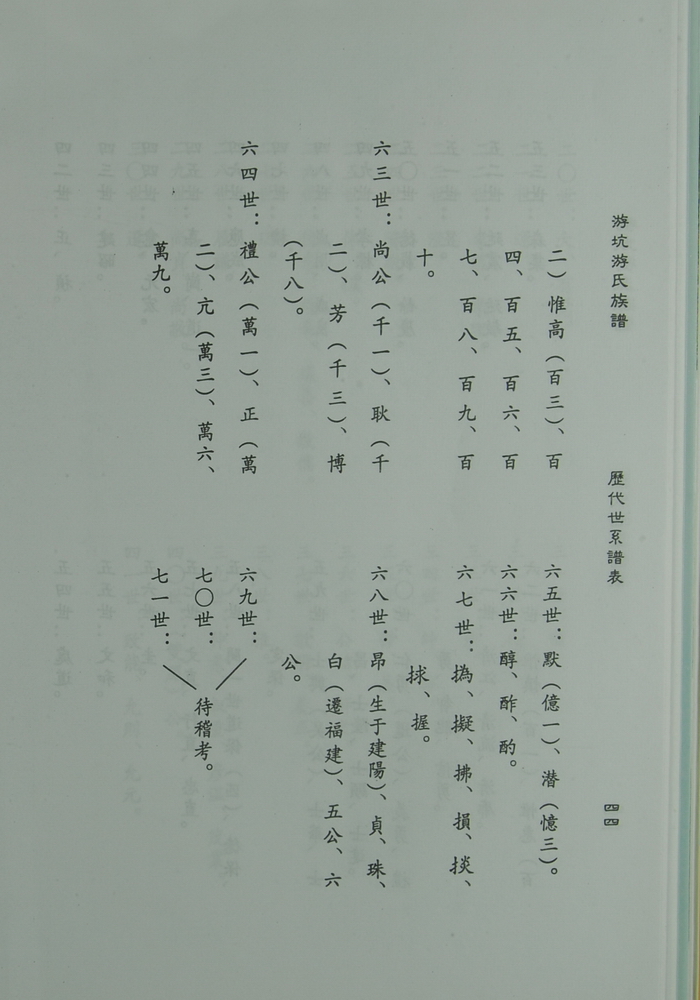 游坑游氏族譜
歷代世系譜表
四四
二）惟高（百三）、百
四、百五、百六、百
七、百八、百九、百
十。
六三世：尚公（千一）、耿（千
二）、芳（千三）、博
（千八）。
六四世：禮公（萬一）、正（萬
二）、亢（萬三）、萬六、
萬九。
六五世：默（億一）、潛（憶三）。
六六世：醇、酢、酌。
六七世：撝、擬、拂、損、掞、
捄、握。
六八世：昂（生于建陽）、貞、珠、
白（遷福建）、五公、六
公。
六九世：
七〇世：待稽考。
七一世：